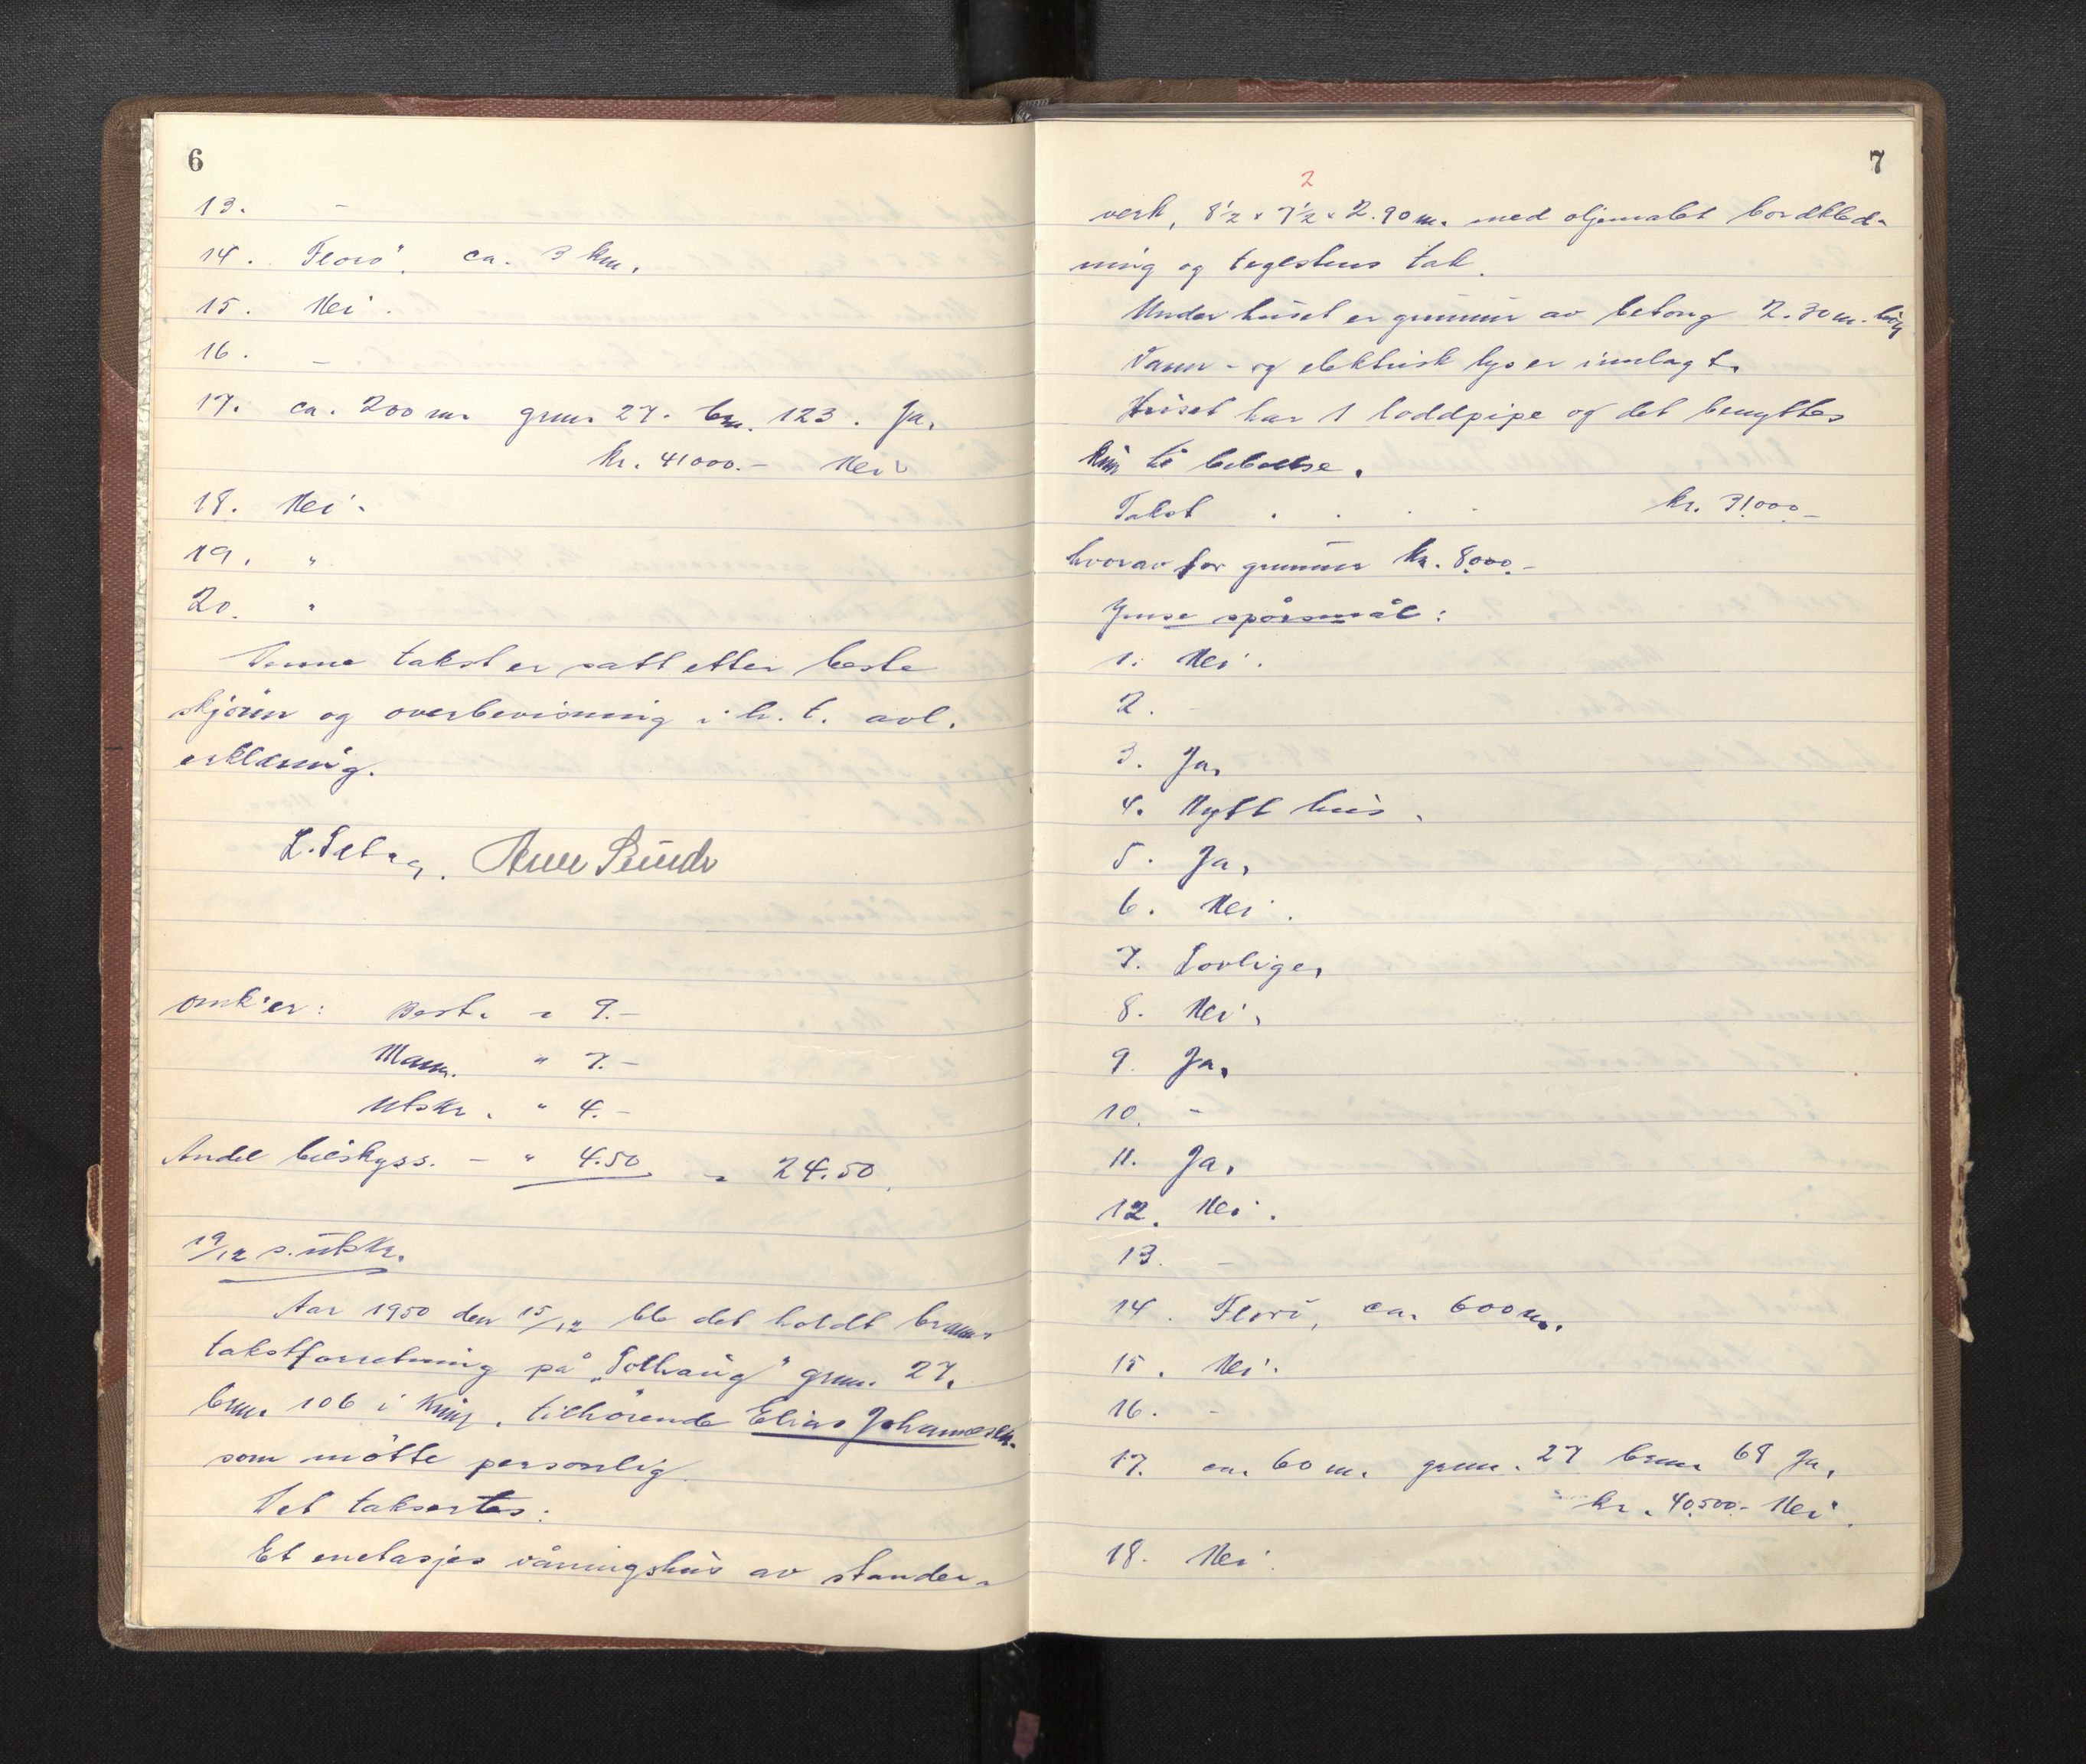 6
13. -
14. Florö, ca. 3 km.
15. Nei.
16. -
17. ca. 200 m. grnr. 27. brnr. 123. Ja.
kr. 41000.- Nei
18. Nei.
19. "
20. "
Denne takst er satt etter beste
skjönn og overbevisning i h. t. avl.
erklæring.
omk'er: Best. = 9.-
Mann. " 7.-
Utskr. " 4.-
Andel bilskyss. - " 4.50 = 24.50.
19/12 s. utskr.
Aar 1950 den 15/12 ble det holdt brann-
takstforretning på „Solhaug" grnr. 27.
brnr. 106 i Kinn, tilhörende Elias Johannessen.
som mötte personlig.
Det taksertes:
Et enetasjes våningshus av stander-
7
2
verk, 8½ x 7½ x 2.90 m. med oljemalet bordkled-
ning og teglstens tak.
Under huset er grunnur av betong 2.30 m. höy
Vann- og elektrisk lys er innlagt.
Huset har 1 loddpipe og det benyttes
kun til beboelse.
Takst . . . . kr. 31000.-
hvorav for grunnur kr. 8000.-
Ymse spörsmål:
1. Nei.
2. -
3. Ja.
4. Nytt hus.
5. Ja.
6. Nei.
7. Lovlige.
8. Nei.
9. Ja.
10. -
11. Ja.
12. Nei.
13. -
14. Florö, ca. 600 m.
15. Nei.
16. -
17. ca. 60 m. grnr. 27 brnr. 68 Ja.
kr. 40500.- Nei.
18. Nei.